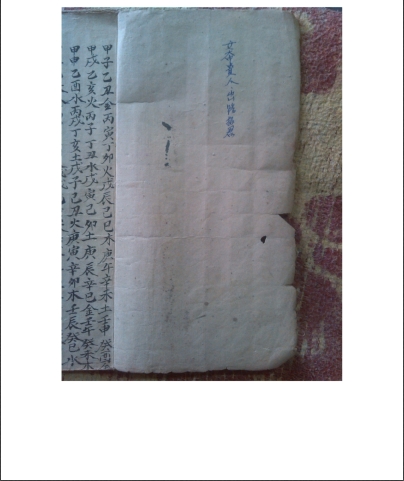 女命貴人出
甲子乙丑金丙寅丁卯火戊辰己巳木庚午辛未土壬申癸酉
甲戌乙亥火丙子丁丑水戊寅己卯土庚辰辛巳金壬午癸未木
甲申乙酉水丙戌丁亥土戊子己丑火庚寅辛卯木壬辰癸巳水